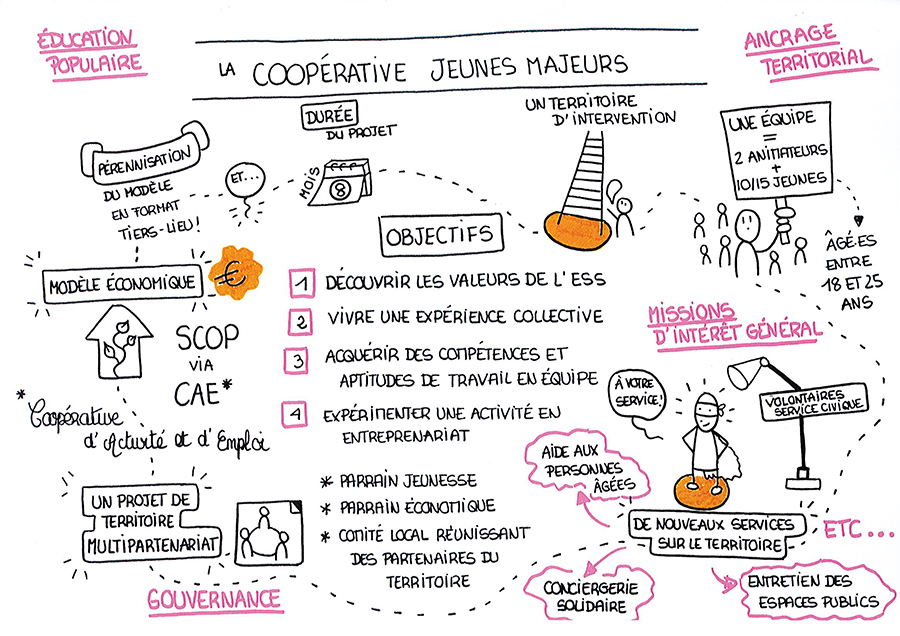 ÉDUCATION
POPULAIRE
LA COOPÉRATIVE JEUNES MAJEURS
ANCRAGE
TERRITORIAL
PÉRENNISATION
DU MODÈLE
EN FORMAT
TIERS-LIEU!
ET...
DURÉE
DU PROJET
MOIS
8
UN TERRITOIRE
D'INTERVENTION
UNE ÉQUIPE
=
2 ANIMATEURS
+
10/15 JEUNES
ÂGÉ.ES
ENTRE
18 ET 25
ANS
MODÈLE ÉCONOMIQUE
€
SCOP
VIA
CAE*
* Coopérative
d'Activité et d'Emploi
OBJECTIFS
1 DÉCOUVRIR LES VALEURS DE L'ESS
2 VIVRE UNE EXPÉRIENCE COLLECTIVE
3 ACQUÉRIR DES COMPÉTENCES ET
APTITUDES DE TRAVAIL EN ÉQUIPE
4 EXPÉRIMENTER UNE ACTIVITÉ EN
ENTREPRENARIAT
MISSIONS
D'INTÉRÊT GÉNÉRAL
À VOTRE
SERVICE!
VOLONTAIRES
SERVICE CIVIQUE
AIDE AUX
PERSONNES
ÂGÉES
DE NOUVEAUX SERVICES
SUR LE TERRITOIRE
ETC...
CONCIERGERIE
SOLIDAIRE
ENTRETIEN DES
ESPACES PUBLICS
UN PROJET DE
TERRITOIRE
MULTIPARTENARIAT
* PARRAIN JEUNESSE
* PARRAIN ÉCONOMIQUE
* COMITÉ LOCAL RÉUNISSANT
DES PARTENAIRES DU
TERRITOIRE
GOUVERNANCE